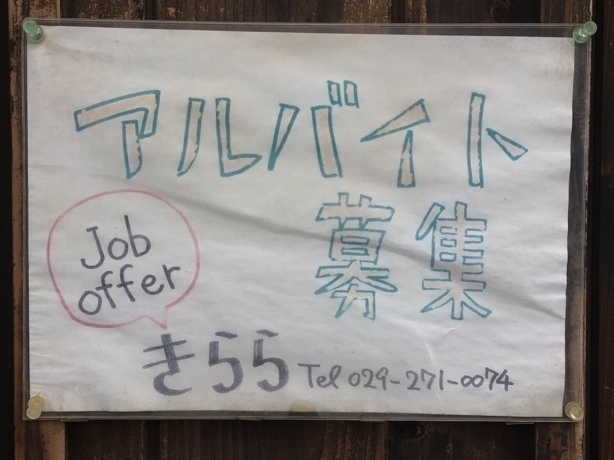 アルバイト
募集
Job
offer
きらら Tel 029-271-0074